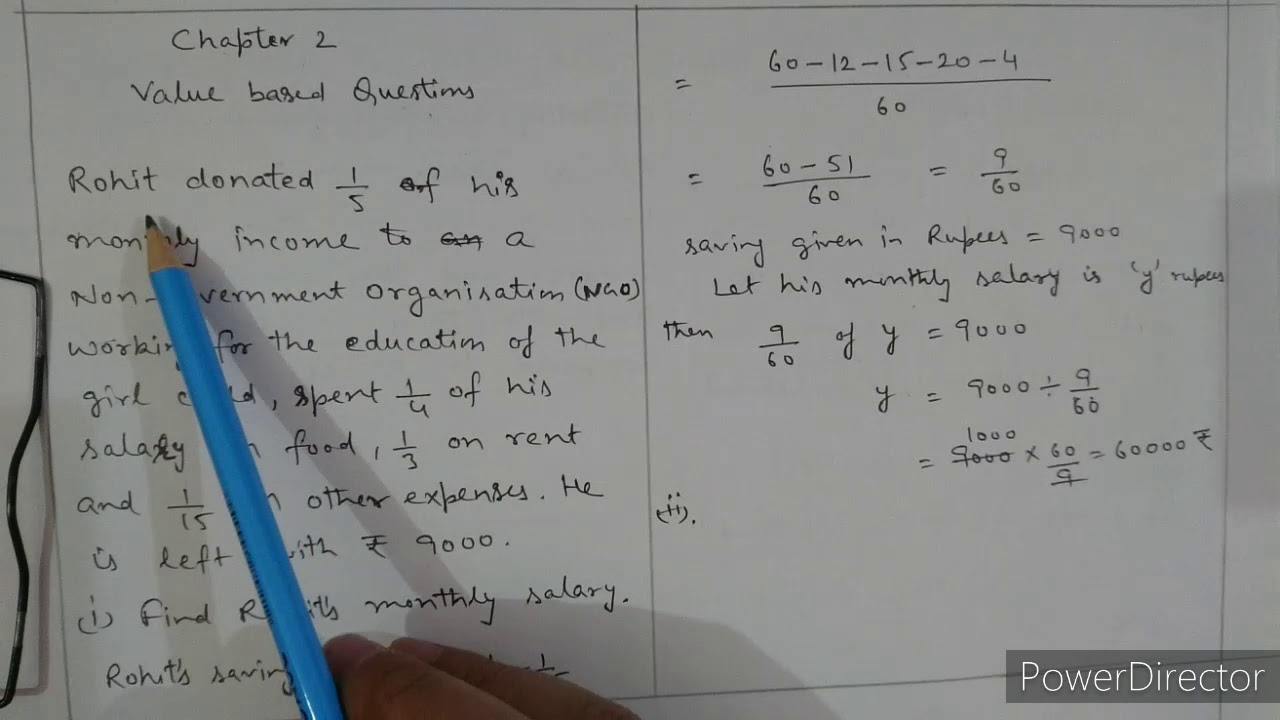 Chapter 2
Value based Questions
Rohit donated 1/5 of his
monthly income to a
Non-vernment Organisation (NGO)
working for the education of the
girl d, spent 1/4 of his
salary food, 1/3 on rent
and 1/15 other expenses. He
is left with ₹ 9000.
(i) Find R it's monthly salary.
Rohit's saving
= 60-12-15-20-4/60
= 60-51/60 = 9/60
saving given in Rupees = 9000
Let his monthly salary is 'y' rupees
then 9/60 of y = 9000
y = 9000 ÷ 9/60
1000
= 9000 × 60/9 = 60000 ₹
(ii).
PowerDirector